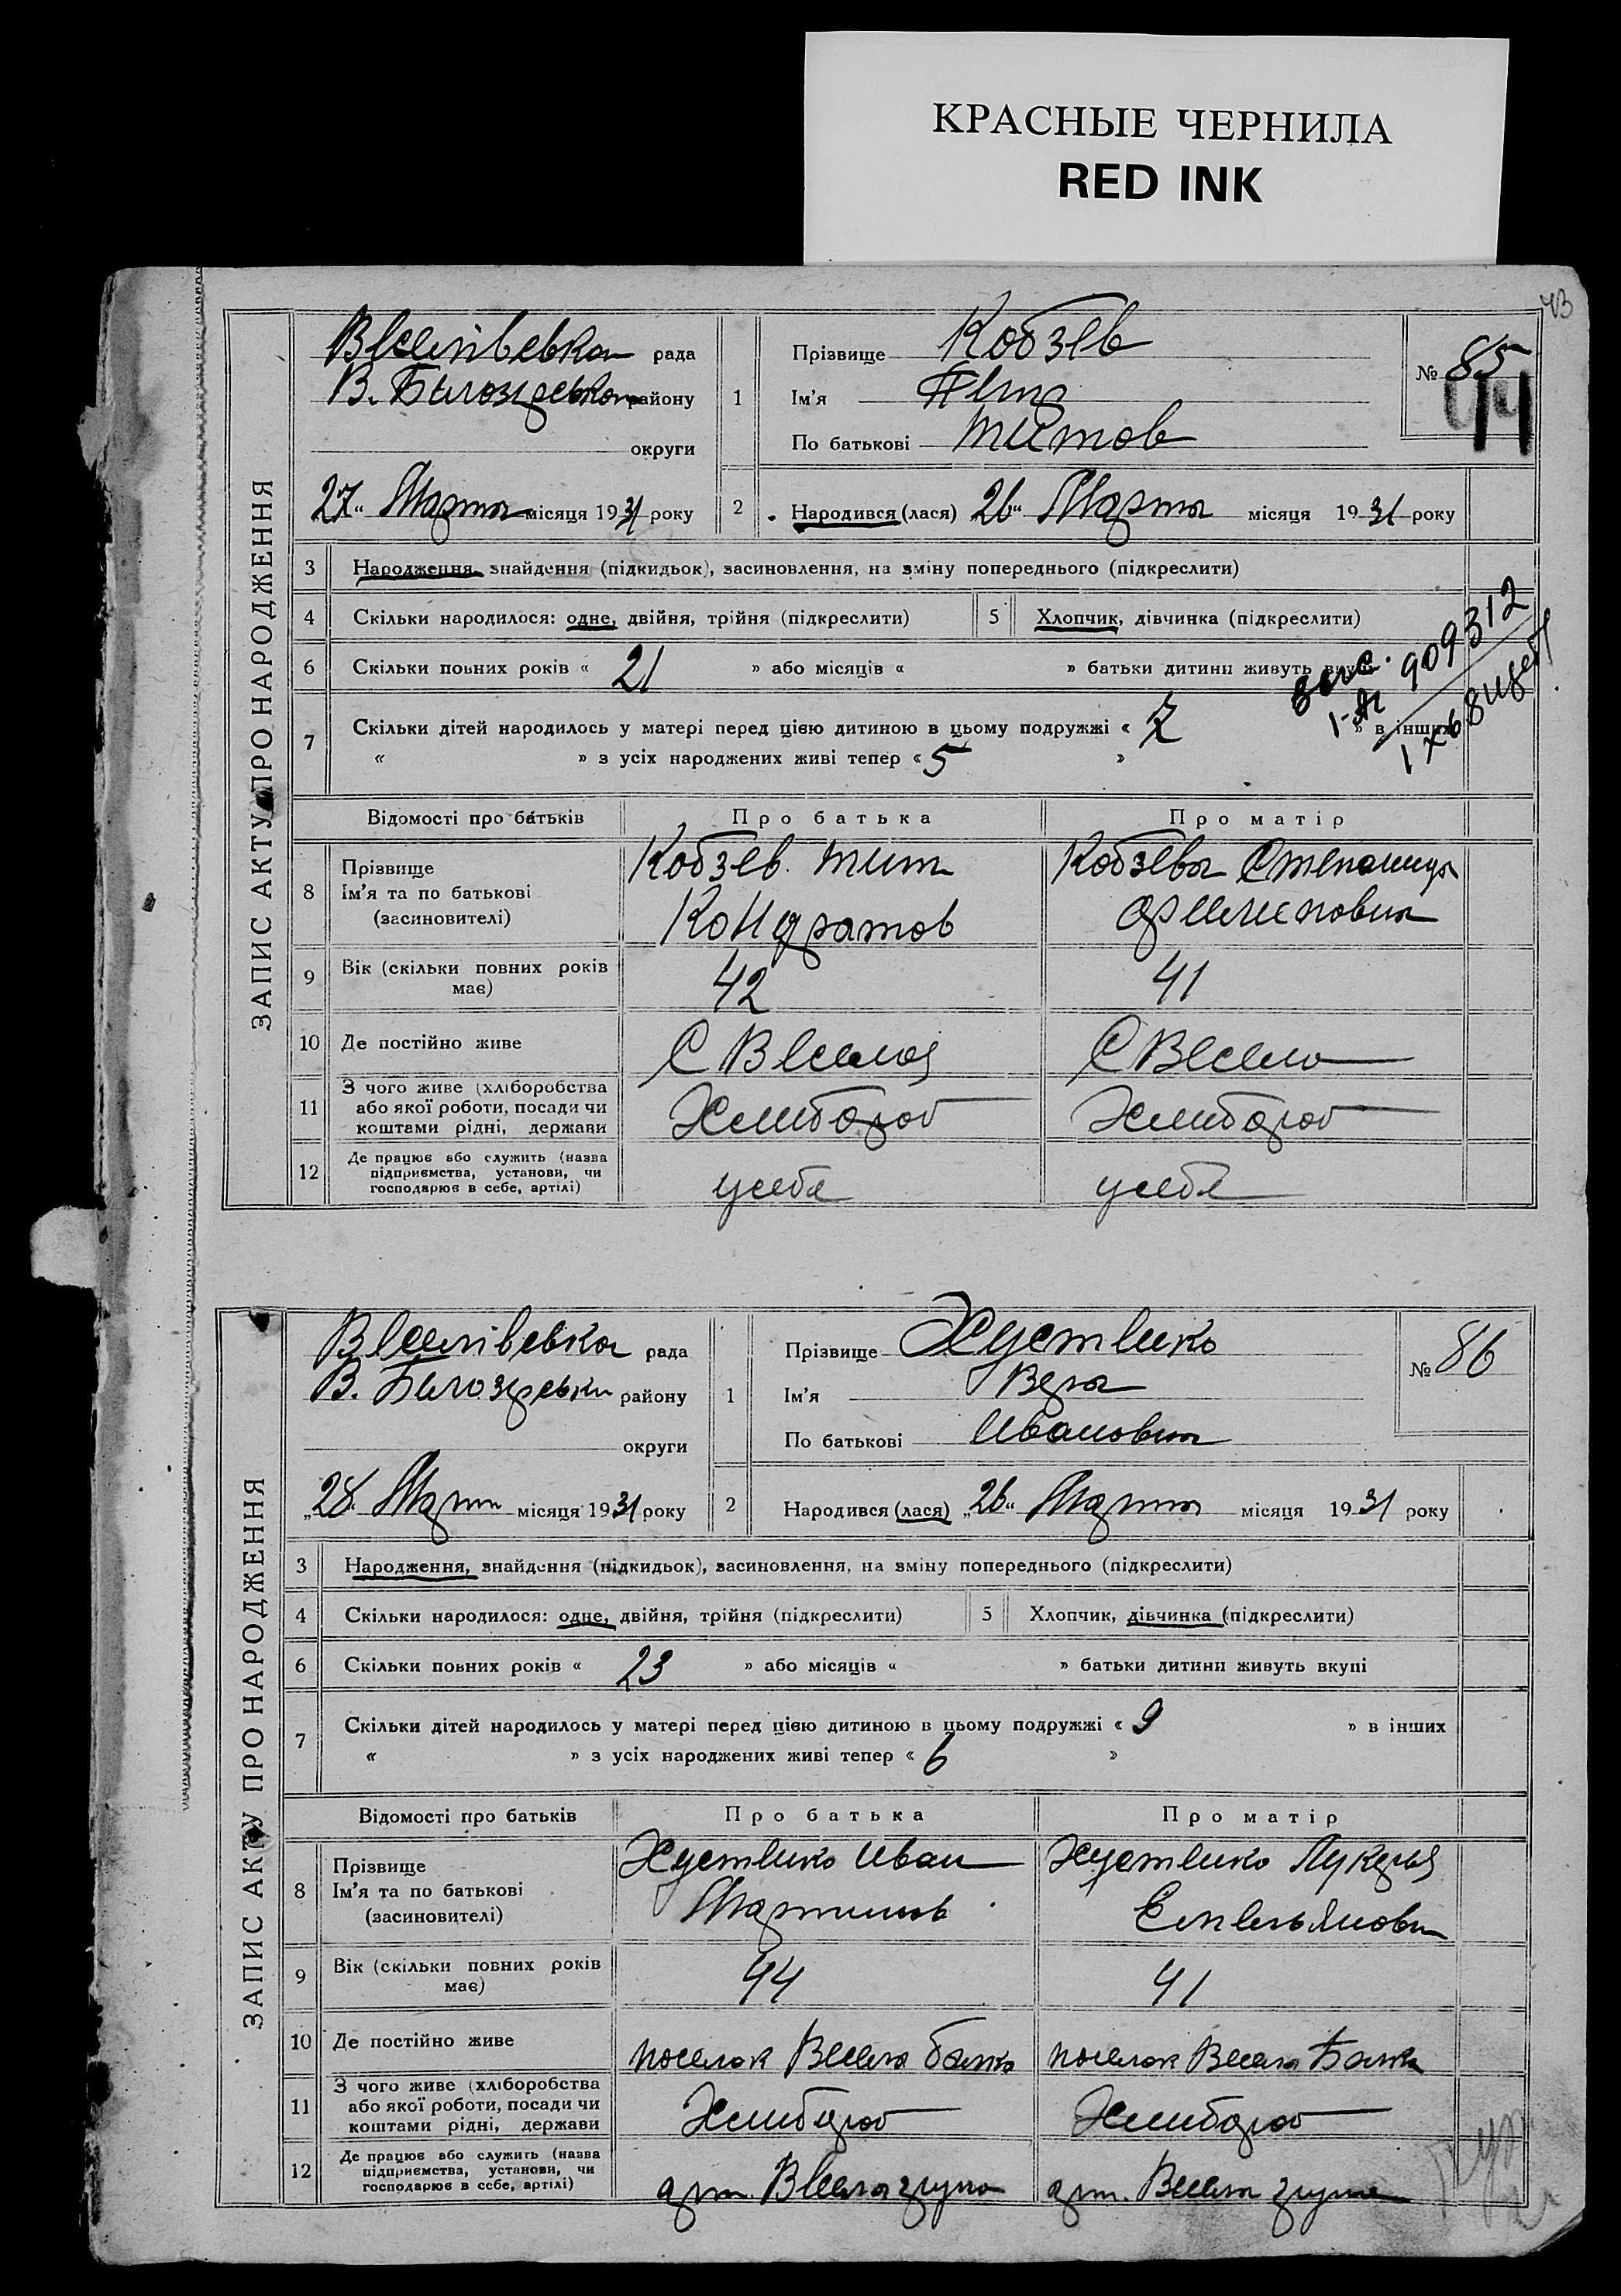 КРАСНЫЕ ЧЕРНИЛА
RED INK
43
ЗАПИС АКТУ ПРО НАРОДЖЕННЯ
Веселівська рада
В. Білозерська району
округи
27 Марта місяця 1931 року
1
Прізвище Кобзев
Ім'я Петр
По батькові Титов
№ 85
44
2 Народився (лася) 26 Марта місяця 1931 року
3 Народження, знайдення (підкидьок), засиновлення, на зміну попереднього (підкреслити)
4 Скільки народилося: одне, двійня, трійня (підкреслити) 5 Хлопчик, дівчинка (підкреслити)
6 Скільки повних років « 21 » або місяців « » батьки дитини живуть вкупі
909312
7 Скільки дітей народилось у матері перед цією дитиною в цьому подружжі « 7 » в інших
« » з усіх народжених живі тепер « 5 »
Відомості про батьків Про батька Про матір
8 Прізвище Ім'я та по батькові (засиновителі)
Кобзев Тит Кобзева Степанида
Кондратов Филиповна
9 Вік (скільки повних років має) 42 41
10 Де постійно живе С Веселое С Весело
11 З чого живе (хліборобства або якої роботи, посади чи коштами рідні, держави Хлибороб Хлибороб
12 Де працює або служить (назва підприємства, установи, чи господарює в себе, артілі) у себе у себе
ЗАПИС АКТУ ПРО НАРОДЖЕННЯ
Веселівська рада
В. Білозерськи району
округи
„28 Марта місяця 1931 року
1
Прізвище Хустенко
Ім'я Вера
По батькові Ивановна
№ 86
2 Народився (лася) „26“ Марта місяця 1931 року
3 Народження, знайдення (підкидьок), засиновлення, на зміну попереднього (підкреслити)
4 Скільки народилося: одне, двійня, трійня (підкреслити) 5 Хлопчик, дівчинка (підкреслити)
6 Скільки повних років « 23 » або місяців « » батьки дитини живуть вкупі
7 Скільки дітей народилось у матері перед цією дитиною в цьому подружжі « 9 » в інших
« » з усіх народжених живі тепер « 6 »
Відомості про батьків Про батька Про матір
8 Прізвище Ім'я та по батькові (засиновителі)
Хустенко Иван Хустенко Лукерья
Мартинов Емельяновн
9 Вік (скільки повних років має) 44 41
10 Де постійно живе поселок Весела балка поселок Весела Балка
11 З чого живе (хліборобства або якої роботи, посади чи коштами рідні, держави Хлибороб Хлибороб
12 Де працює або служить (назва підприємства, установи, чи господарює в себе, артілі) арт. Весела арт. Весела